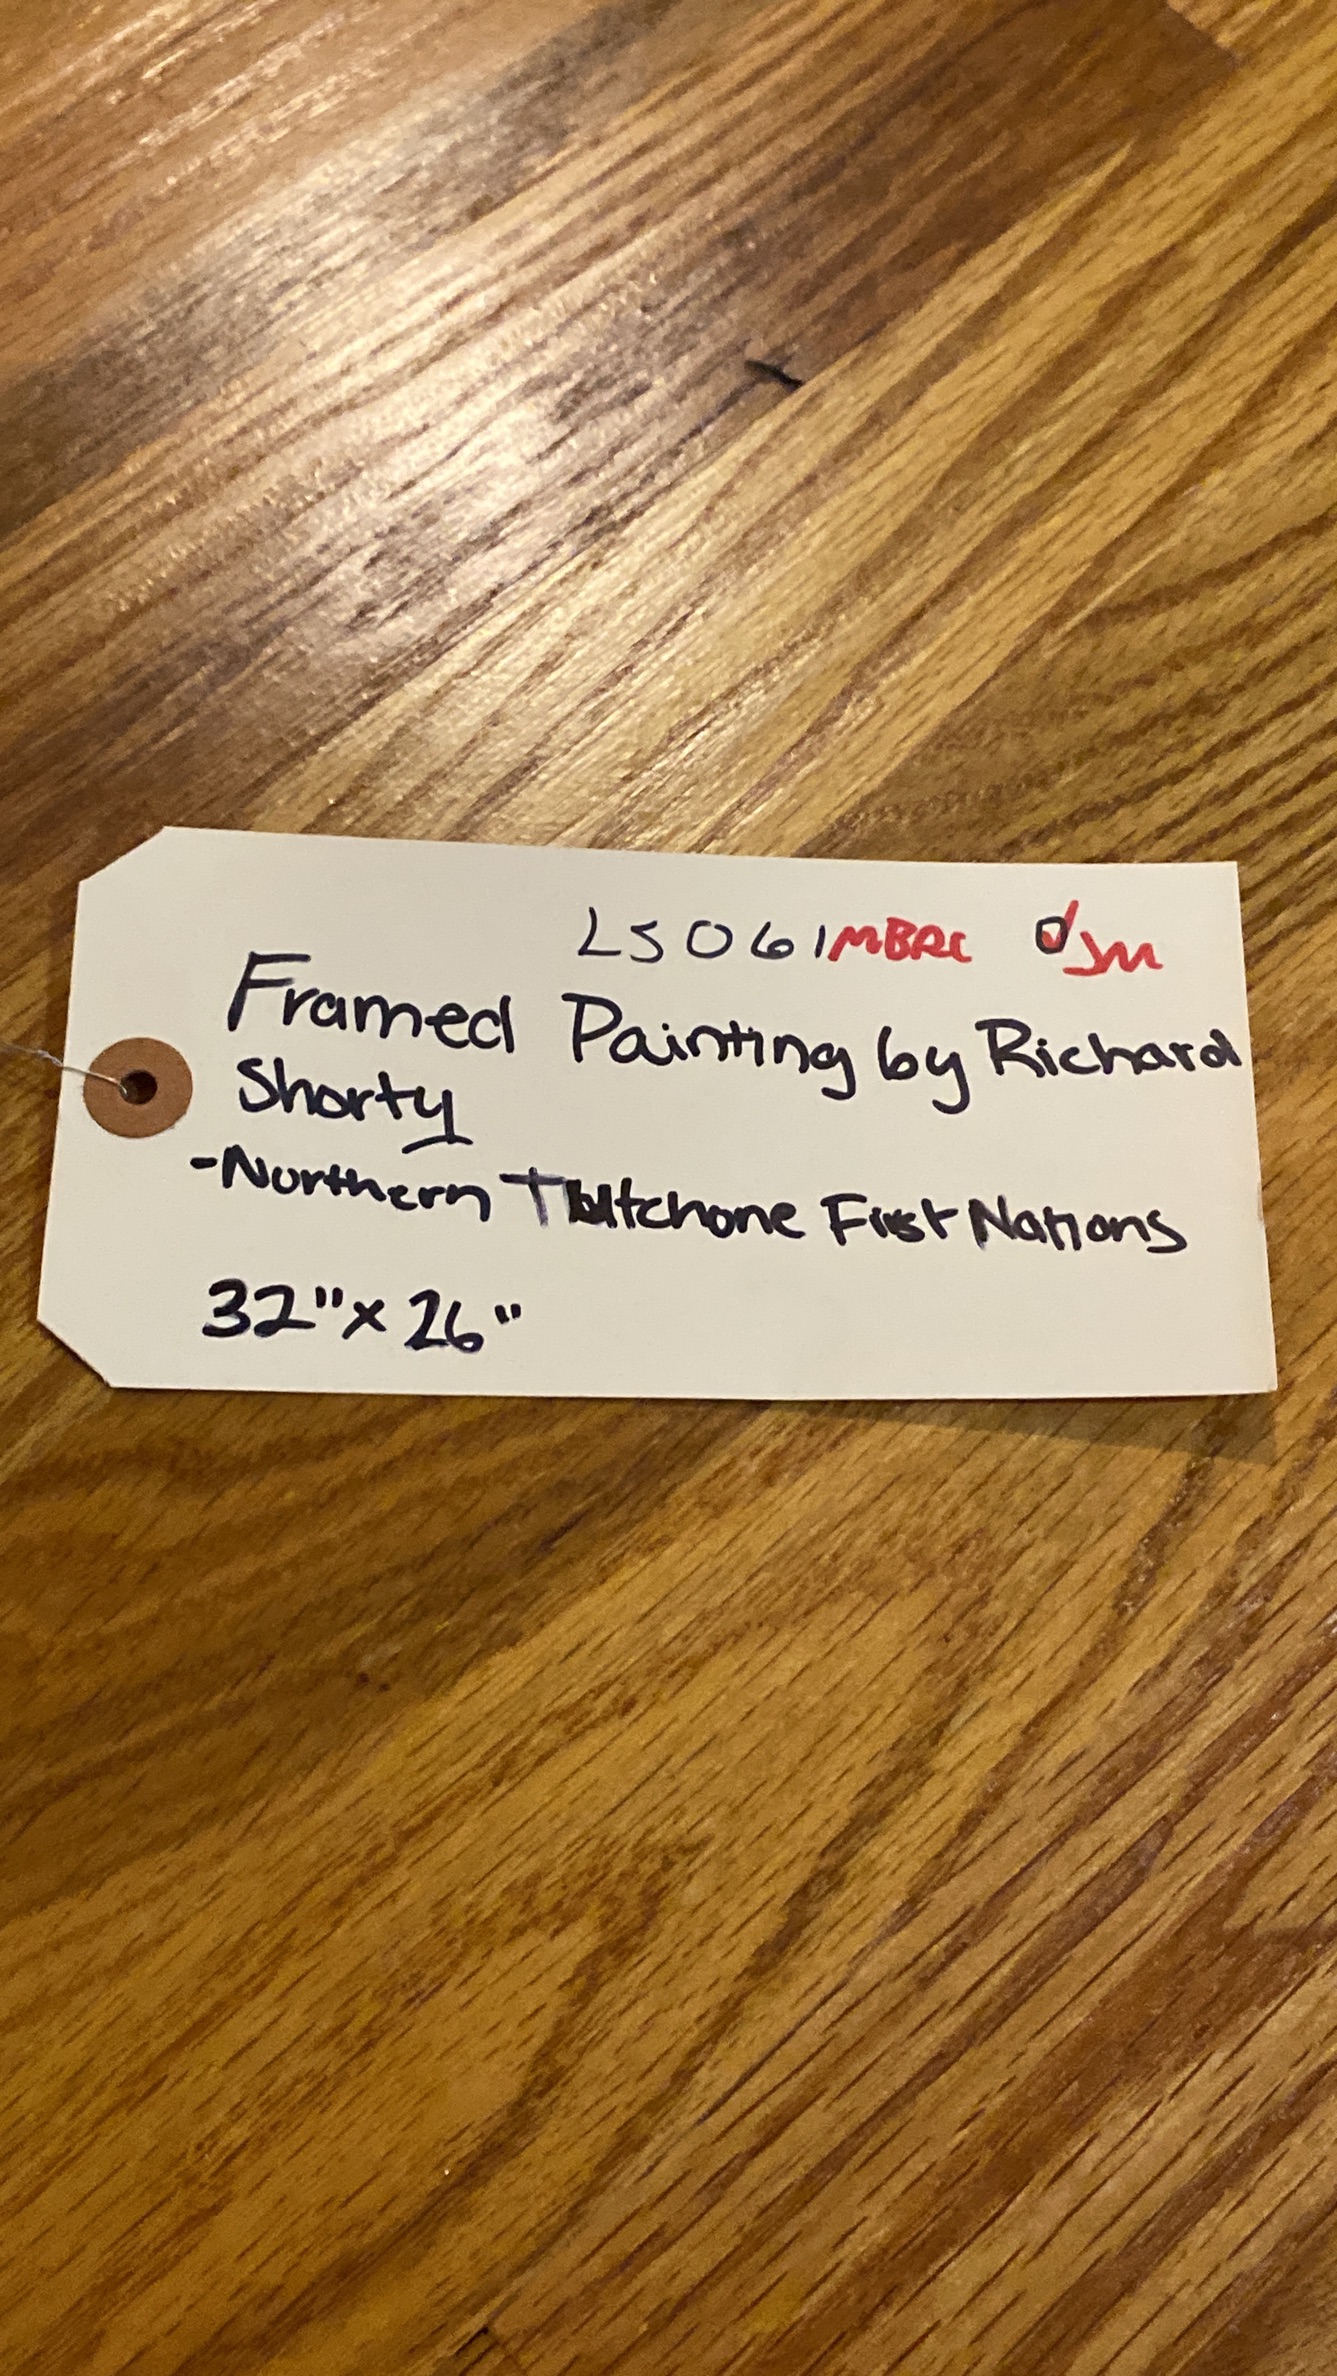 LS061 MBRC JM
Framed Painting by Richard
Shorty
-Northern Tutchone First Nations
32"x 26"